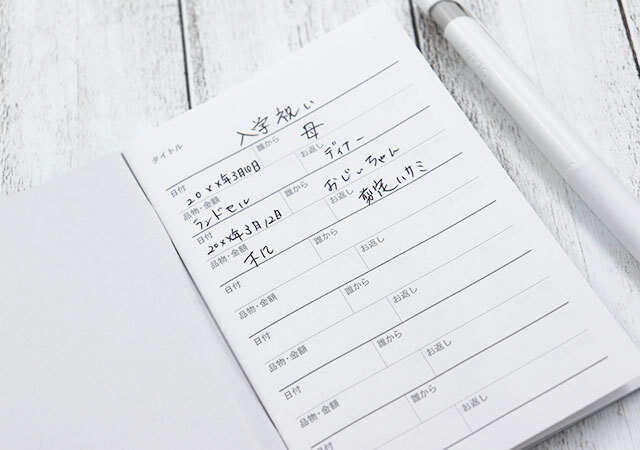 タイトル 入学祝い
日付 20××年3月10日 誰から 母
品物・金額 ランドセル お返し ディナー
日付 20××年3月12日 誰から おじいちゃん
品物・金額 机 お返し 剪定ハサミ
日付 誰から
品物・金額 お返し
日付 誰から
品物・金額 お返し
日付 誰から
品物・金額 お返し
日付 誰から
お返し